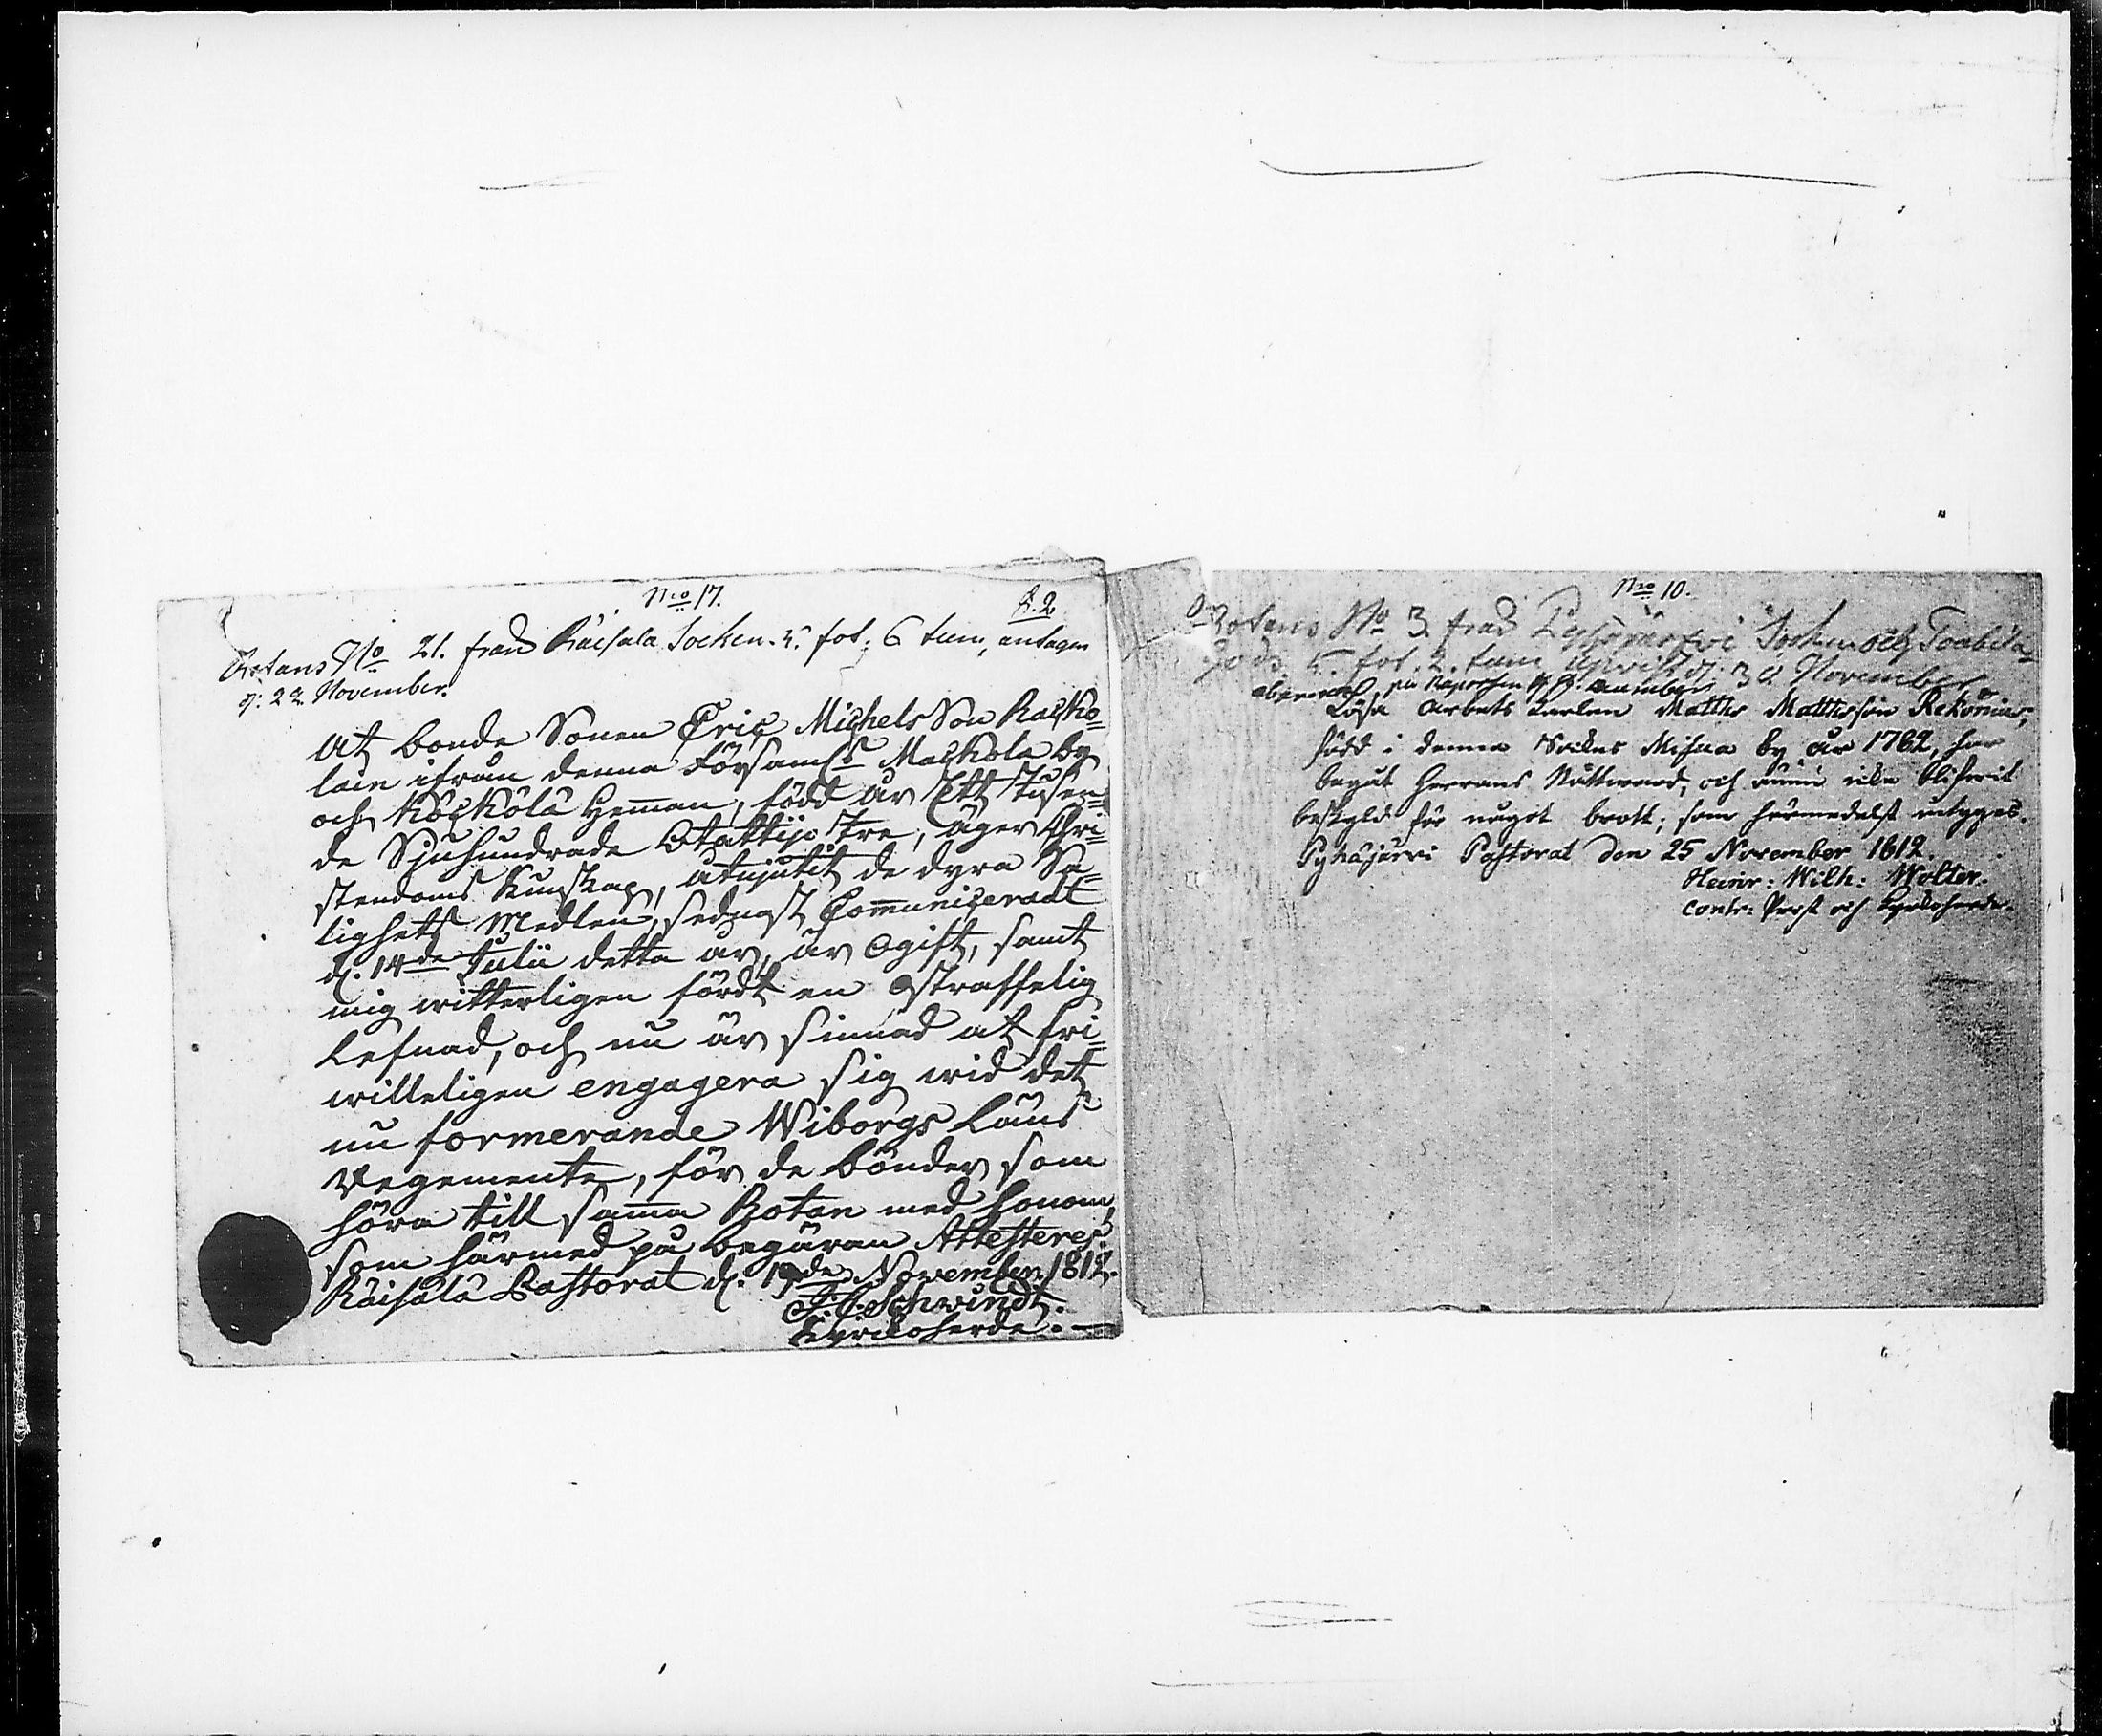 Nro 17.
R. 2
Rotans No 21. från Räisälä Socken. 5. fot. 6 tum, antagen
d: 22 November.
At bonde Sonen Eric MichelsSon Kacko=
lain ifrån denna Församls Mackola by
och Köckölä Hemman, född år Ett Tusen=
de Sjuhundrade Ottattijo Tre, äger Chri=
stendoms Kunskap, utnjutit de dyra Sa=
lighets Medlen, sednast Communiceradt
d. 14de Julii detta år, är Ogift, samt
mig witterligen fördt en Ostraffelig
Lefnad, och nu är sinnad at fri=
willeligen engagera sig wid det
nu formerande Wiborgs Läns
Regemente, för de bönder som
höra till samma Rotan med honom,
som härmed på begäran Attesteres.
Räisälä Pastorat d. 19de November 1812.
J. J. Schwindt.
Kyrkoherde.
Nro 10.
Rotens No 3. från Socken och
Gods 5. fot. 2. tum d: 30 November
Lösa Arbets karlen Matths Mattsson Rekonius,
född i denna Sokns Misna by år 1782, har
begåt Herrans Nattward, och ännu icke blifwit
beskyld för något brott; som härmedelst intygas.
Pyhäjärvi Pastorat den 25 November 1812.
Heinr: Wilh: Wolter.
contr: Prost och Kyrkoherde.